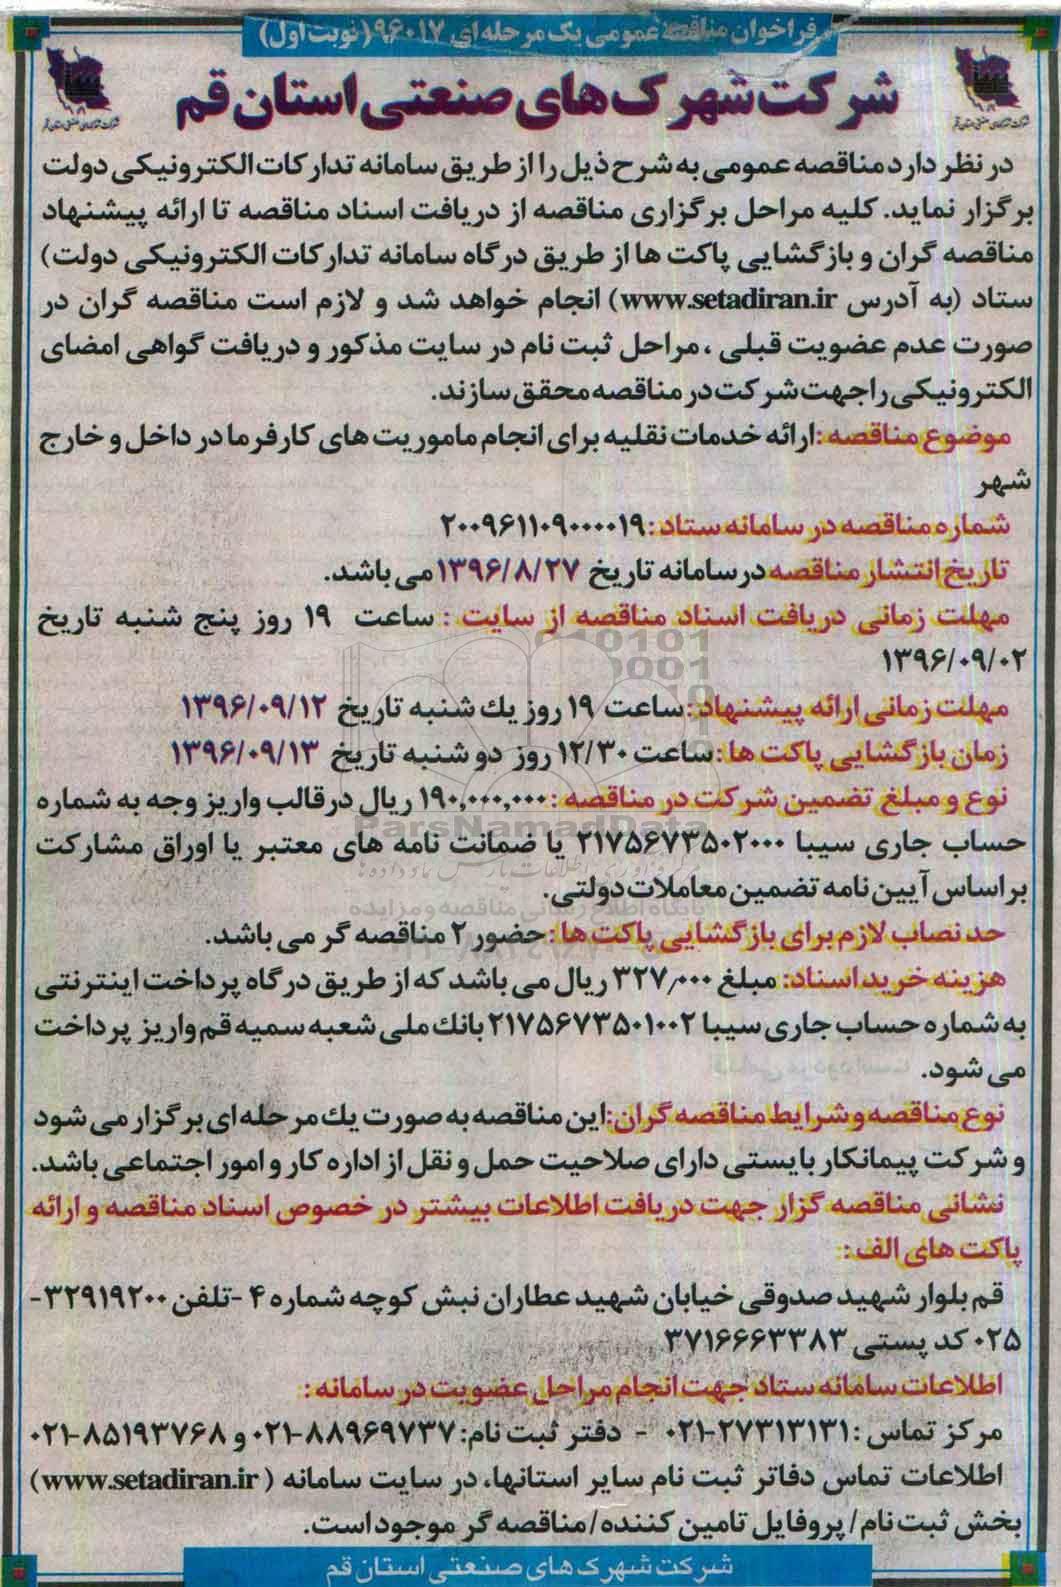 فراخوان مناقصه عمومی یک مرحله ای ۹۶۰۱۷ (نوبت اول)
شرکت شهرک های صنعتی استان قم
در نظر دارد مناقصه عمومی به شرح ذیل را از طریق سامانه تدارکات الکترونیکی دولت
برگزار نماید. کلیه مراحل برگزاری مناقصه از دریافت اسناد مناقصه تا ارائه پیشنهاد
مناقصه گران و بازگشایی پاکت ها از طریق درگاه سامانه تدارکات الکترونیکی دولت)
ستاد (به آدرس www.setadiran.ir) انجام خواهد شد و لازم است مناقصه گران در
صورت عدم عضویت قبلی ، مراحل ثبت نام در سایت مذکور و دریافت گواهی امضای
الکترونیکی را جهت شرکت در مناقصه محقق سازند.
موضوع مناقصه :ارائه خدمات نقلیه برای انجام ماموریت های کارفرما در داخل و خارج
شهر
شماره مناقصه در سامانه ستاد :۲۰۰۹۶۱۱۰۹۰۰۰۰۱۹
تاریخ انتشار مناقصه در سامانه تاریخ ۱۳۹۶/۸/۲۷ می باشد.
مهلت زمانی دریافت اسناد مناقصه از سایت : ساعت ۱۹ روز پنج شنبه تاریخ
۱۳۹۶/۰۹/۰۲
مهلت زمانی ارائه پیشنهاد :ساعت ۱۹ روز یك شنبه تاریخ ۱۳۹۶/۰۹/۱۲
زمان بازگشایی پاکت ها :ساعت ۱۲/۳۰ روز دو شنبه تاریخ ۱۳۹۶/۰۹/۱۳
نوع و مبلغ تضمین شرکت در مناقصه :۱۹۰,۰۰۰,۰۰۰ ریال در قالب واریز وجه به شماره
حساب جاری سیبا ۲۱۷۵۶۷۳۵۰۲۰۰۰ یا ضمانت نامه های معتبر یا اوراق مشارکت
براساس آیین نامه تضمین معاملات دولتی.
حد نصاب لازم برای بازگشایی پاکت ها :حضور ۲ مناقصه گر می باشد.
هزینه خرید اسناد: مبلغ ۳۲۷٫۰۰۰ ریال می باشد که از طریق درگاه پرداخت اینترنتی
به شماره حساب جاری سیبا ۲۱۷۵۶۷۳۵۰۱۰۰۲ بانك ملی شعبه سمیه قم واریز پرداخت
می شود.
نوع مناقصه و شرایط مناقصه گران:این مناقصه به صورت یك مرحله ای برگزار می شود
و شرکت پیمانکار بایستی دارای صلاحیت حمل و نقل از اداره کار و امور اجتماعی باشد.
نشانی مناقصه گزار جهت دریافت اطلاعات بیشتر در خصوص اسناد مناقصه و ارائه
پاکت های الف :
قم بلوار شهید صدوقی خیابان شهید عطاران نبش کوچه شماره ۴ -تلفن ۳۲۹۱۹۲۰۰-
۰۲۵ کد پستی ۳۷۱۶۶۶۳۳۸۳
اطلاعات سامانه ستاد جهت انجام مراحل عضویت در سامانه :
مرکز تماس :۲۷۳۱۳۱۳۱-۰۲۱ - دفتر ثبت نام: ۸۸۹۶۹۷۳۷-۰۲۱ و ۸۵۱۹۳۷۶۸-۰۲۱
اطلاعات تماس دفاتر ثبت نام سایر استانها، در سایت سامانه (www.setadiran.ir)
بخش ثبت نام/ پروفایل تامین کننده/ مناقصه گر موجود است.
شرکت شهرک های صنعتی استان قم
ParsNamadData
پایگاه اطلاع رسانی مناقصه و مزایده